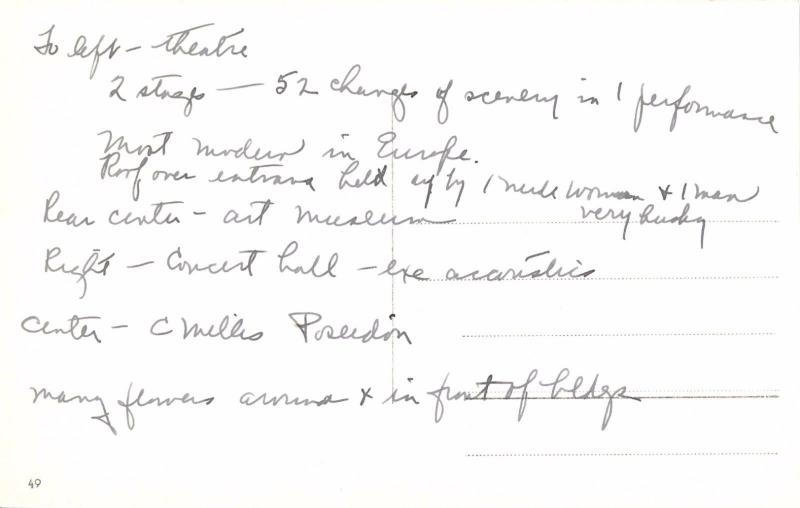 To left - theatre
2 stages — 52 changes of scenery in 1 performance
Most modern in Europe.
Roof over entrance held up by 1 nude woman & 1 man
very husky
Rear center - art museum
Right - Concert hall - exc acoustics
Center - C Milles Poseidon
many flowers around & in front of bldgs
49